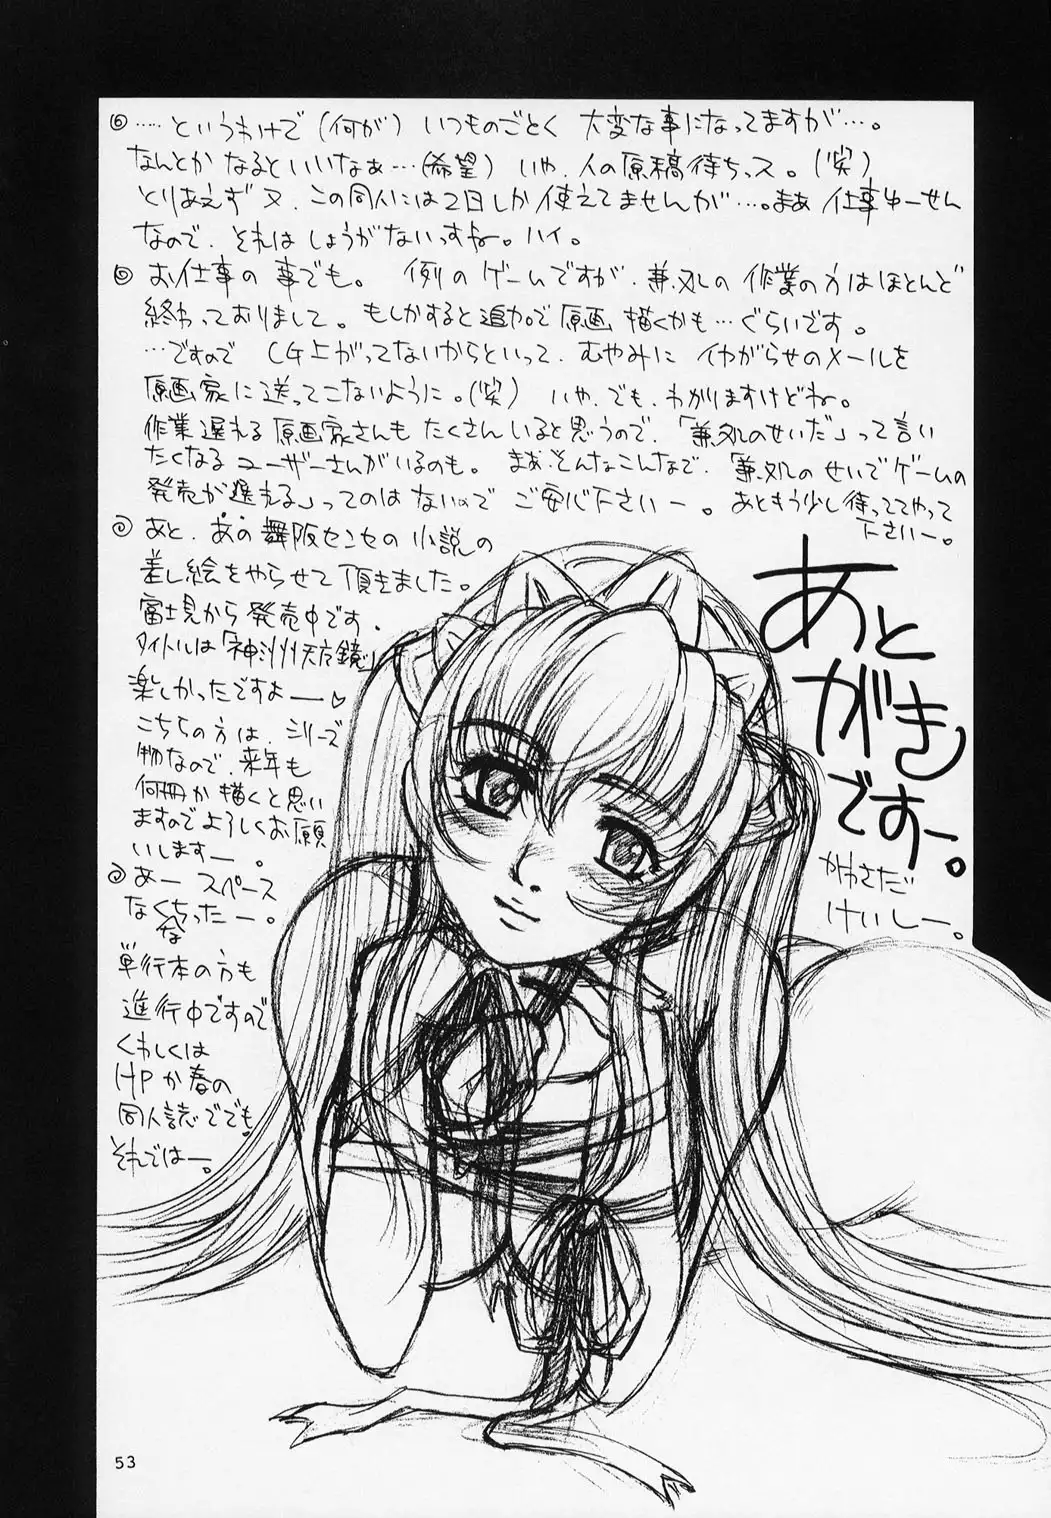 ⑥ ……というわけで(何が) いつものごとく 大変な事になってますが…。
なんとか なるといいなぁ…(希望) いや、人の原稿待ちっス。(笑)
とりあえず 又、この同人には2日しか使えてませんが…。まあ 仕事ゆーせん
なので、それは しょうがないっすねー。ハイ。
⑥ お仕事の 事でも。 例の ゲームですが、兼処の 作業の方はほとんど
終わっておりまして。もしかすると追加で 原画 描くかも…ぐらいです。
…ですので CG上がってないからといって、むやみに イヤがらせのメールを
原画家に送ってこないように。(笑) いや、でも、わかりますけどねー。
作業遅れる 原画家さんも たくさん いると思うので、「兼処のせいだ」って言い
たくなる ユーザーさんがいるのも。 まあ、そんなこんなで、「兼処の せいでゲームの
発売が遅れる」ってのは ないので ご安心下さいー。あともう少し待っててやって
下さいー。
あと、あの 舞阪センセの 小説の
差し絵をやらせて 頂きました。
富士見から 発売中です。
タイトルは「神州天方鏡」
楽しかったですよーー♡
こちらの方は、シリーズ
物なので、来年も
何冊か 描くと思い
ますので よろしくお願
いしますー。
あー スペース
なくなちったー。
単行本の方も
進行中ですので
くわしくは
HPか春の
同人誌ででも。
それではー。
あと
がき
ですー。
かわさだ
けいしー。
53